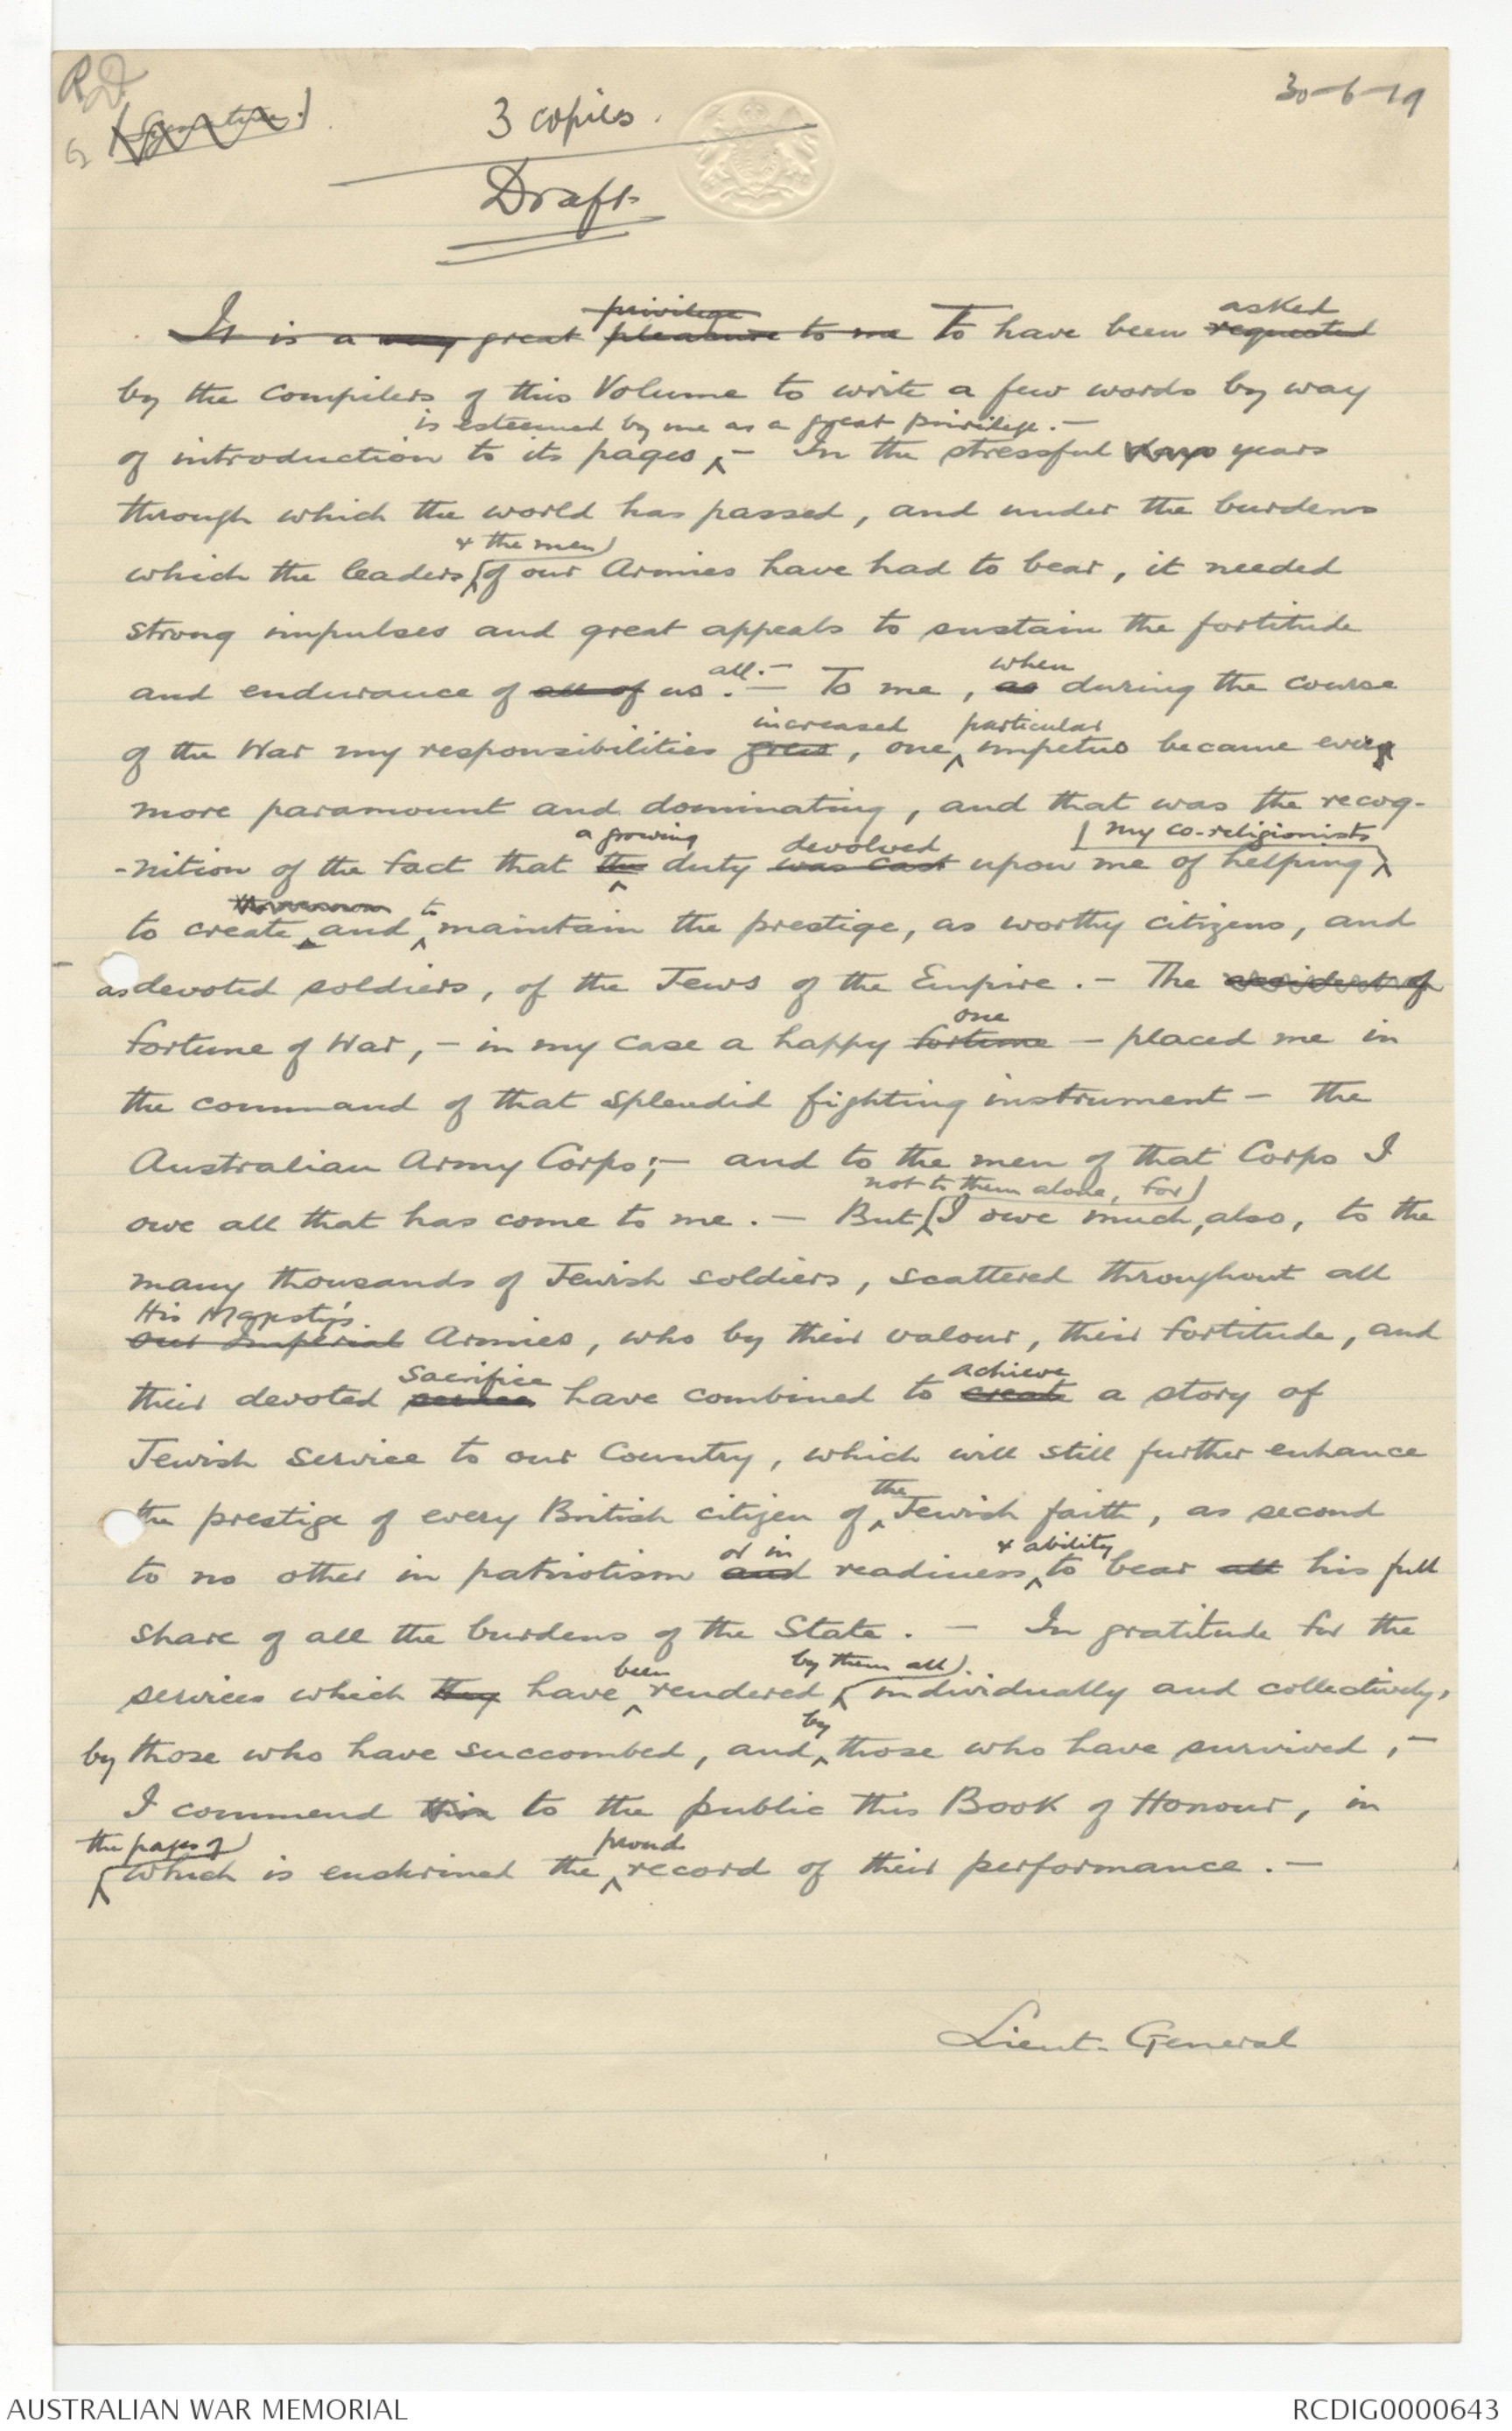 RD
30-6-19
(Signature.)
3 copies.
Draft
privilege
asked
It is a very great pleasure to me To have been requested
by the compilers of this Volume to write a few words by way
is esteemed by me as a great privilege. —
of introduction to its pages — In the stressful days years
through which the world has passed, and under the burdens
& the men
which the leaders of our Armies have had to bear, it needed
strong impulses and great appeals to sustain the fortitude
all. —
when
and endurance of all of us. — To me, as during the course
increased particular
of the War my responsibilities grew, one impetus became ever
more paramount and dominating, and that was the recog-
a growing devolved my co-religionists
-nition of the fact that the duty was cast upon me of helping
to
to create and maintain the prestige, as worthy citizens, and
as devoted soldiers, of the Jews of the Empire. — The accident of
one
fortune of War, — in my case a happy fortune — placed me in
the command of that splendid fighting instrument — the
Australian Army Corps; — and to the men of that Corps I
not to them alone, for
owe all that has come to me. — But I owe much, also, to the
many thousands of Jewish soldiers, scattered throughout all
His Majesty's
our Imperial Armies, who by their valour, their fortitude, and
sacrifice achieve
their devoted service have combined to create a story of
Jewish service to our Country, which will still further enhance
the
the prestige of every British citizen of Jewish faith, as second
or in & ability
to no other in patriotism and readiness to bear all his full
share of all the burdens of the State. — In gratitude for the
been by them all
services which they have rendered individually and collectively,
by
by those who have succombed, and those who have survived, —
I commend this to the public this Book of Honour, in
the pages of proud
which is enshrined the record of their performance. —
Lieut. General
AUSTRALIAN WAR MEMORIAL
RCDIG0000643